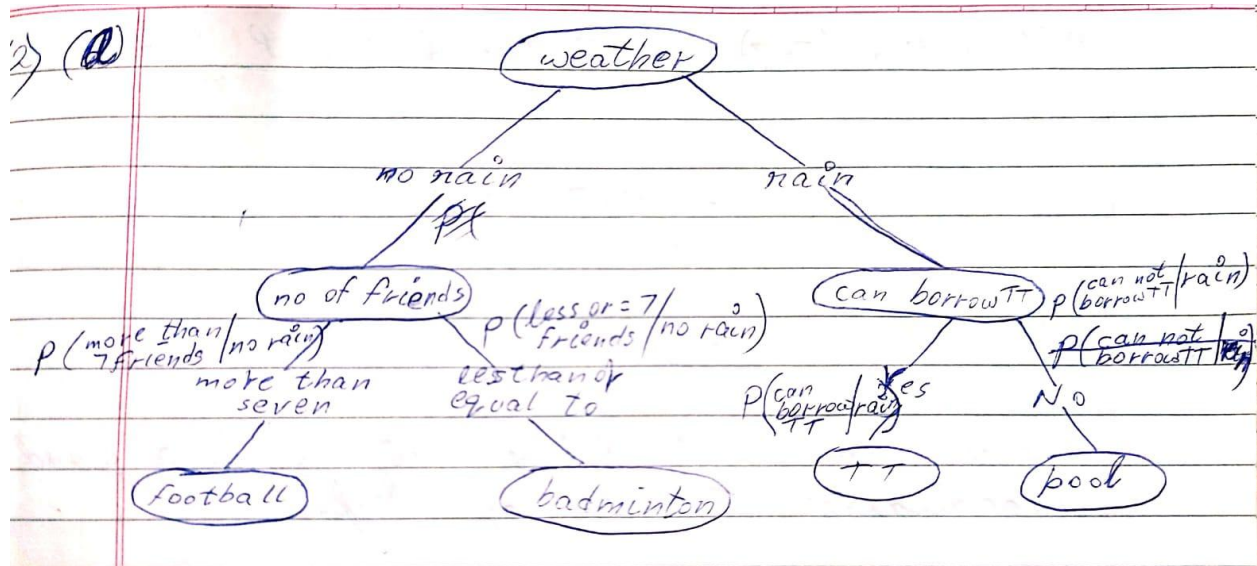 2) (a)
weather
no rain
rain
no of friends
can borrow TT
P(can not borrow TT/rain)
P(more than 7 friends/no rain)
P(less or = 7 friends/no rain)
P(can not borrow TT/
more than
seven
less than or
equal to
P(can borrow TT/rain)
Yes
No
football
badminton
TT
pool